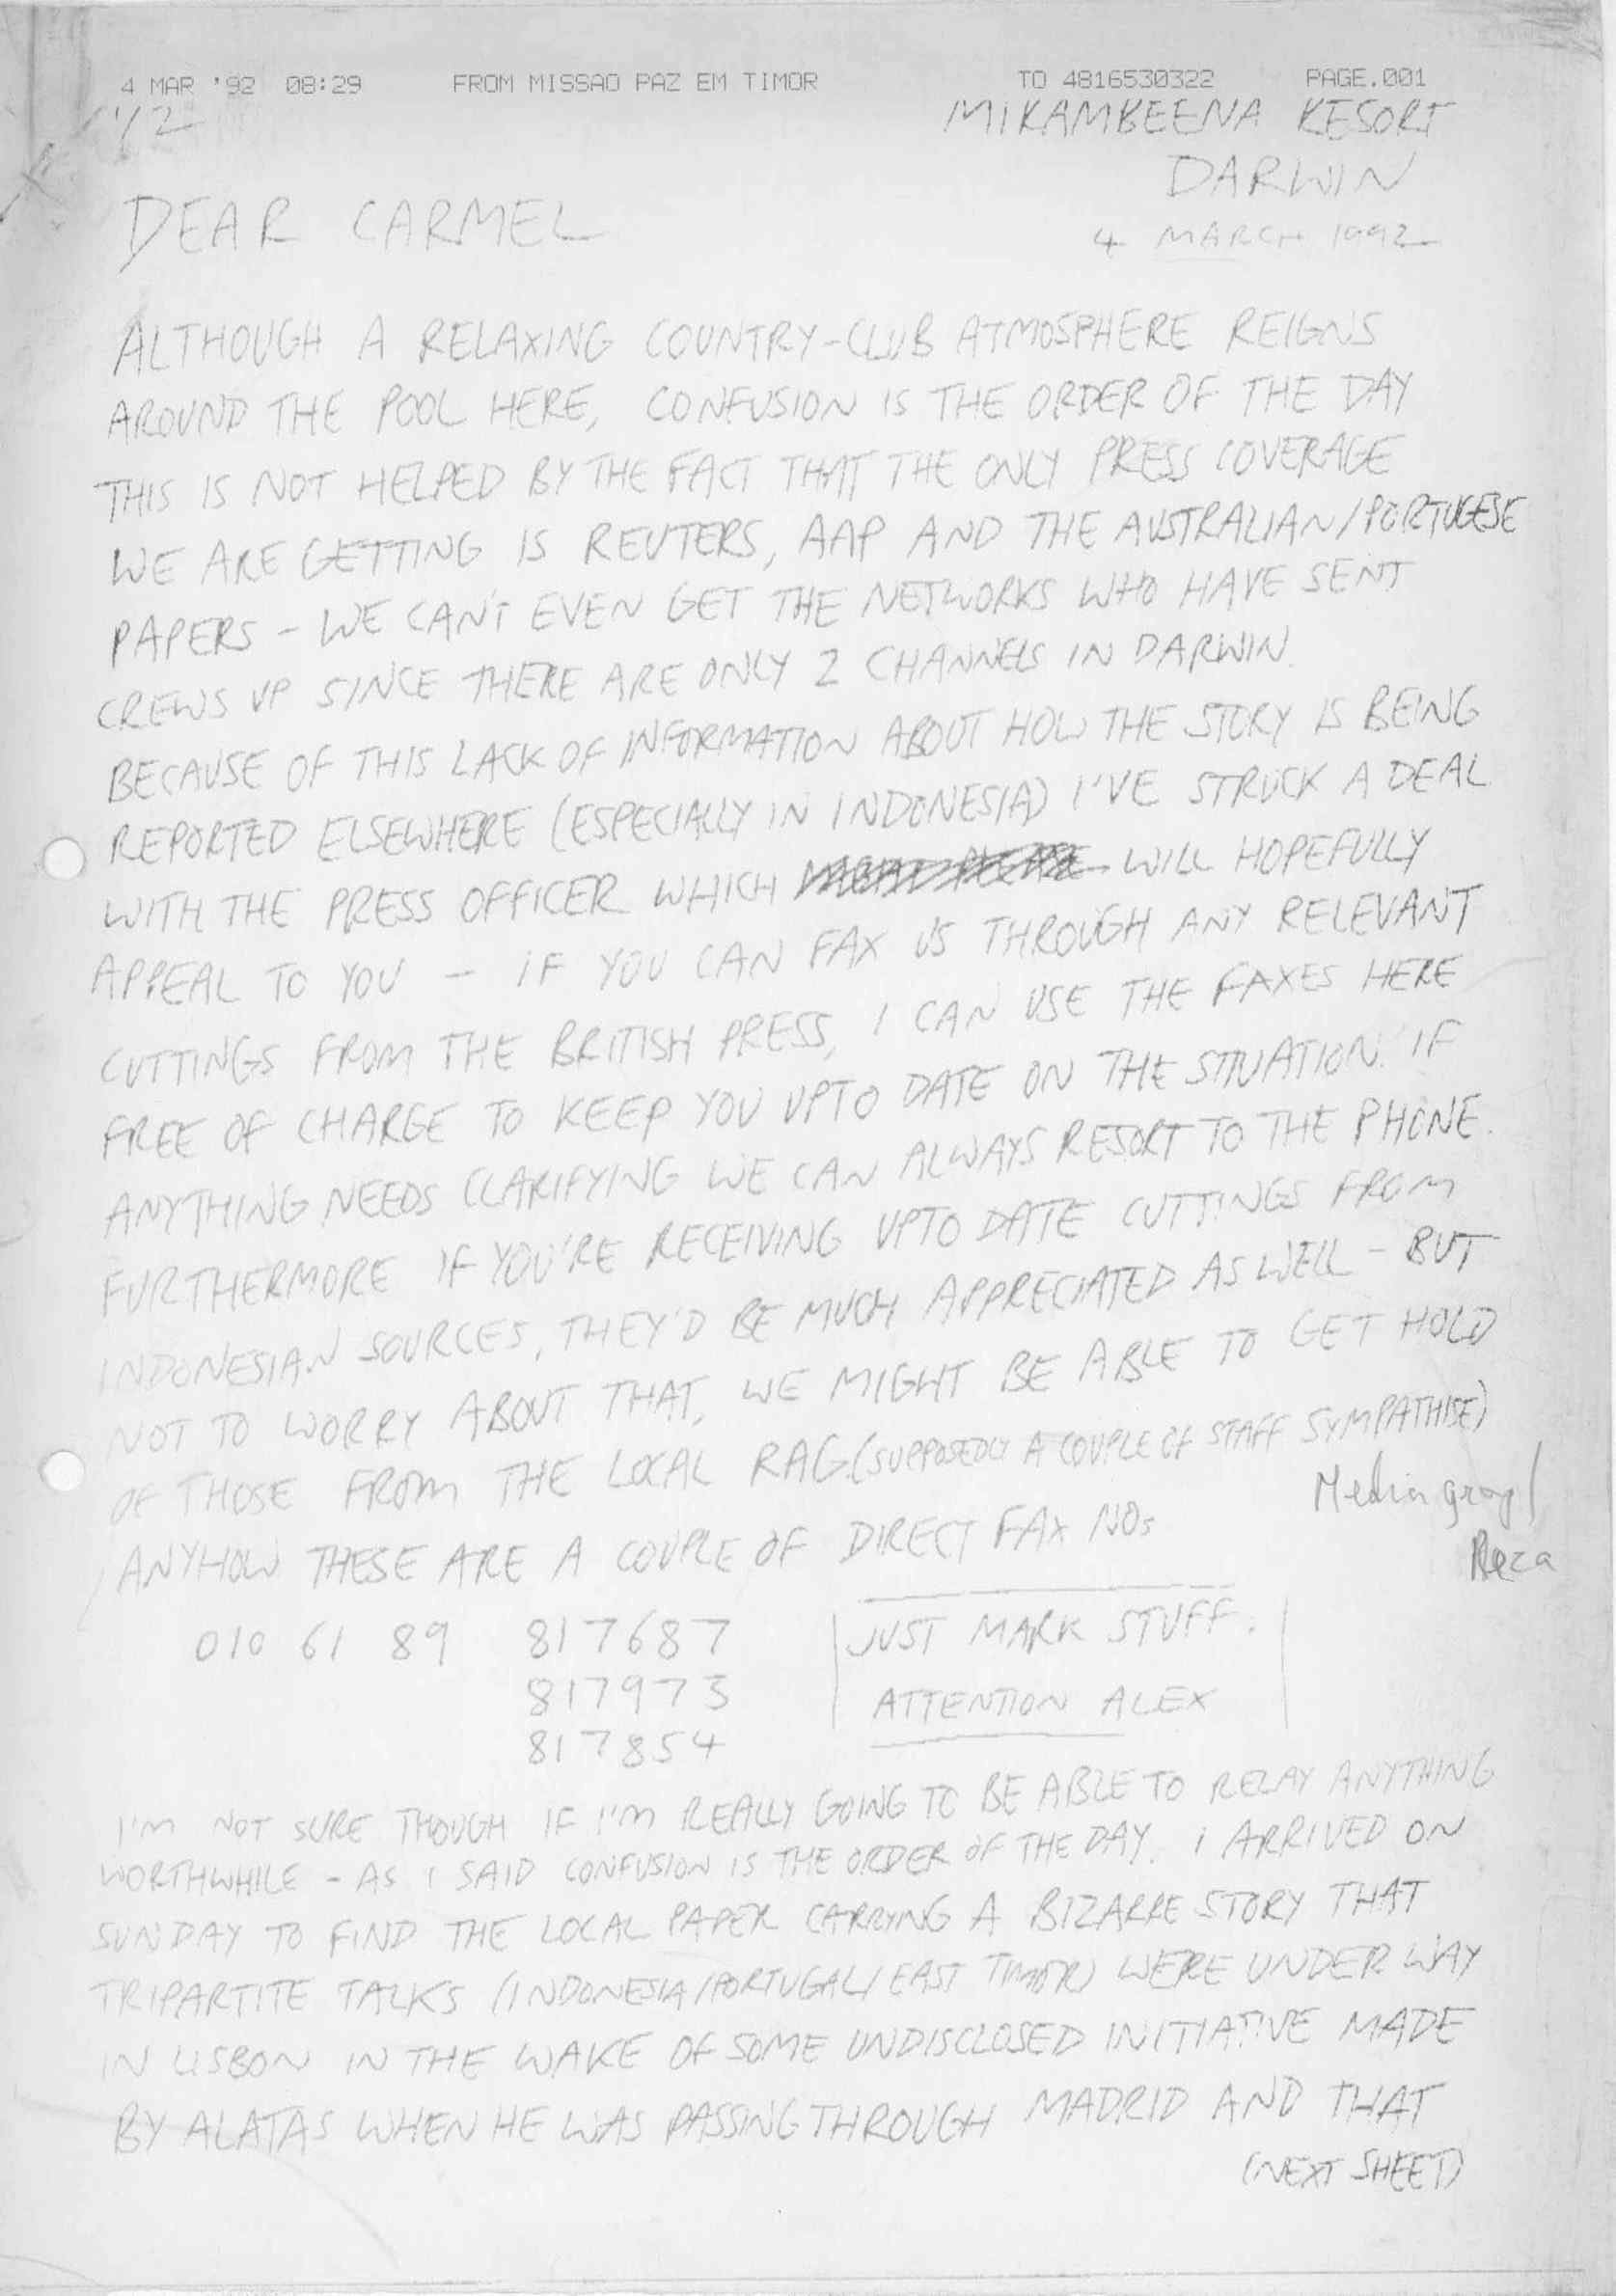 4 MAR '92 08:29 FROM MISSAO PAZ EM TIMOR TO 4816530322 PAGE.001
1/2
MIRAMBEENA RESORT
DARWIN
4 MARCH 1992
DEAR CARMEL
ALTHOUGH A RELAXING COUNTRY-CLUB ATMOSPHERE REIGNS
AROUND THE POOL HERE, CONFUSION IS THE ORDER OF THE DAY
THIS IS NOT HELPED BY THE FACT THAT THE ONLY PRESS COVERAGE
WE ARE GETTING IS REUTERS, AAP AND THE AUSTRALIAN/PORTUGESE
PAPERS - WE CAN'T EVEN GET THE NETWORKS WHO HAVE SENT
CREWS UP SINCE THERE ARE ONLY 2 CHANNELS IN DARWIN.
BECAUSE OF THIS LACK OF INFORMATION ABOUT HOW THE STORY IS BEING
REPORTED ELSEWHERE (ESPECIALLY IN INDONESIA) I'VE STRUCK A DEAL
WITH THE PRESS OFFICER WHICH WILL HOPEFULLY
APPEAL TO YOU - IF YOU CAN FAX US THROUGH ANY RELEVANT
CUTTINGS FROM THE BRITISH PRESS, I CAN USE THE FAXES HERE
FREE OF CHARGE TO KEEP YOU UPTO DATE ON THE SITUATION. IF
ANYTHING NEEDS CLARIFYING WE CAN ALWAYS RESORT TO THE PHONE.
FURTHERMORE IF YOU'RE RECEIVING UPTO DATE CUTTINGS FROM
INDONESIAN SOURCES, THEY'D BE MUCH APPRECIATED AS WELL - BUT
NOT TO WORRY ABOUT THAT, WE MIGHT BE ABLE TO GET HOLD
OF THOSE FROM THE LOCAL RAG. (SUPPOSEDLY A COUPLE OF STAFF SYMPATHISE)
Media group/
Reza
ANYHOW THESE ARE A COUPLE OF DIRECT FAX NOs
010 61 89 817687
817973
817854
JUST MARK STUFF.
ATTENTION ALEX
I'M NOT SURE THOUGH IF I'M REALLY GOING TO BE ABLE TO RELAY ANYTHING
WORTHWHILE - AS I SAID CONFUSION IS THE ORDER OF THE DAY. I ARRIVED ON
SUNDAY TO FIND THE LOCAL PAPER CARRYING A BIZARRE STORY THAT
TRIPARTITE TALKS (INDONESIA/PORTUGAL/EAST TIMOR) WERE UNDER WAY
IN LISBON IN THE WAKE OF SOME UNDISCLOSED INITIATIVE MADE
BY ALATAS WHEN HE WAS PASSING THROUGH MADRID AND THAT
(NEXT SHEET)